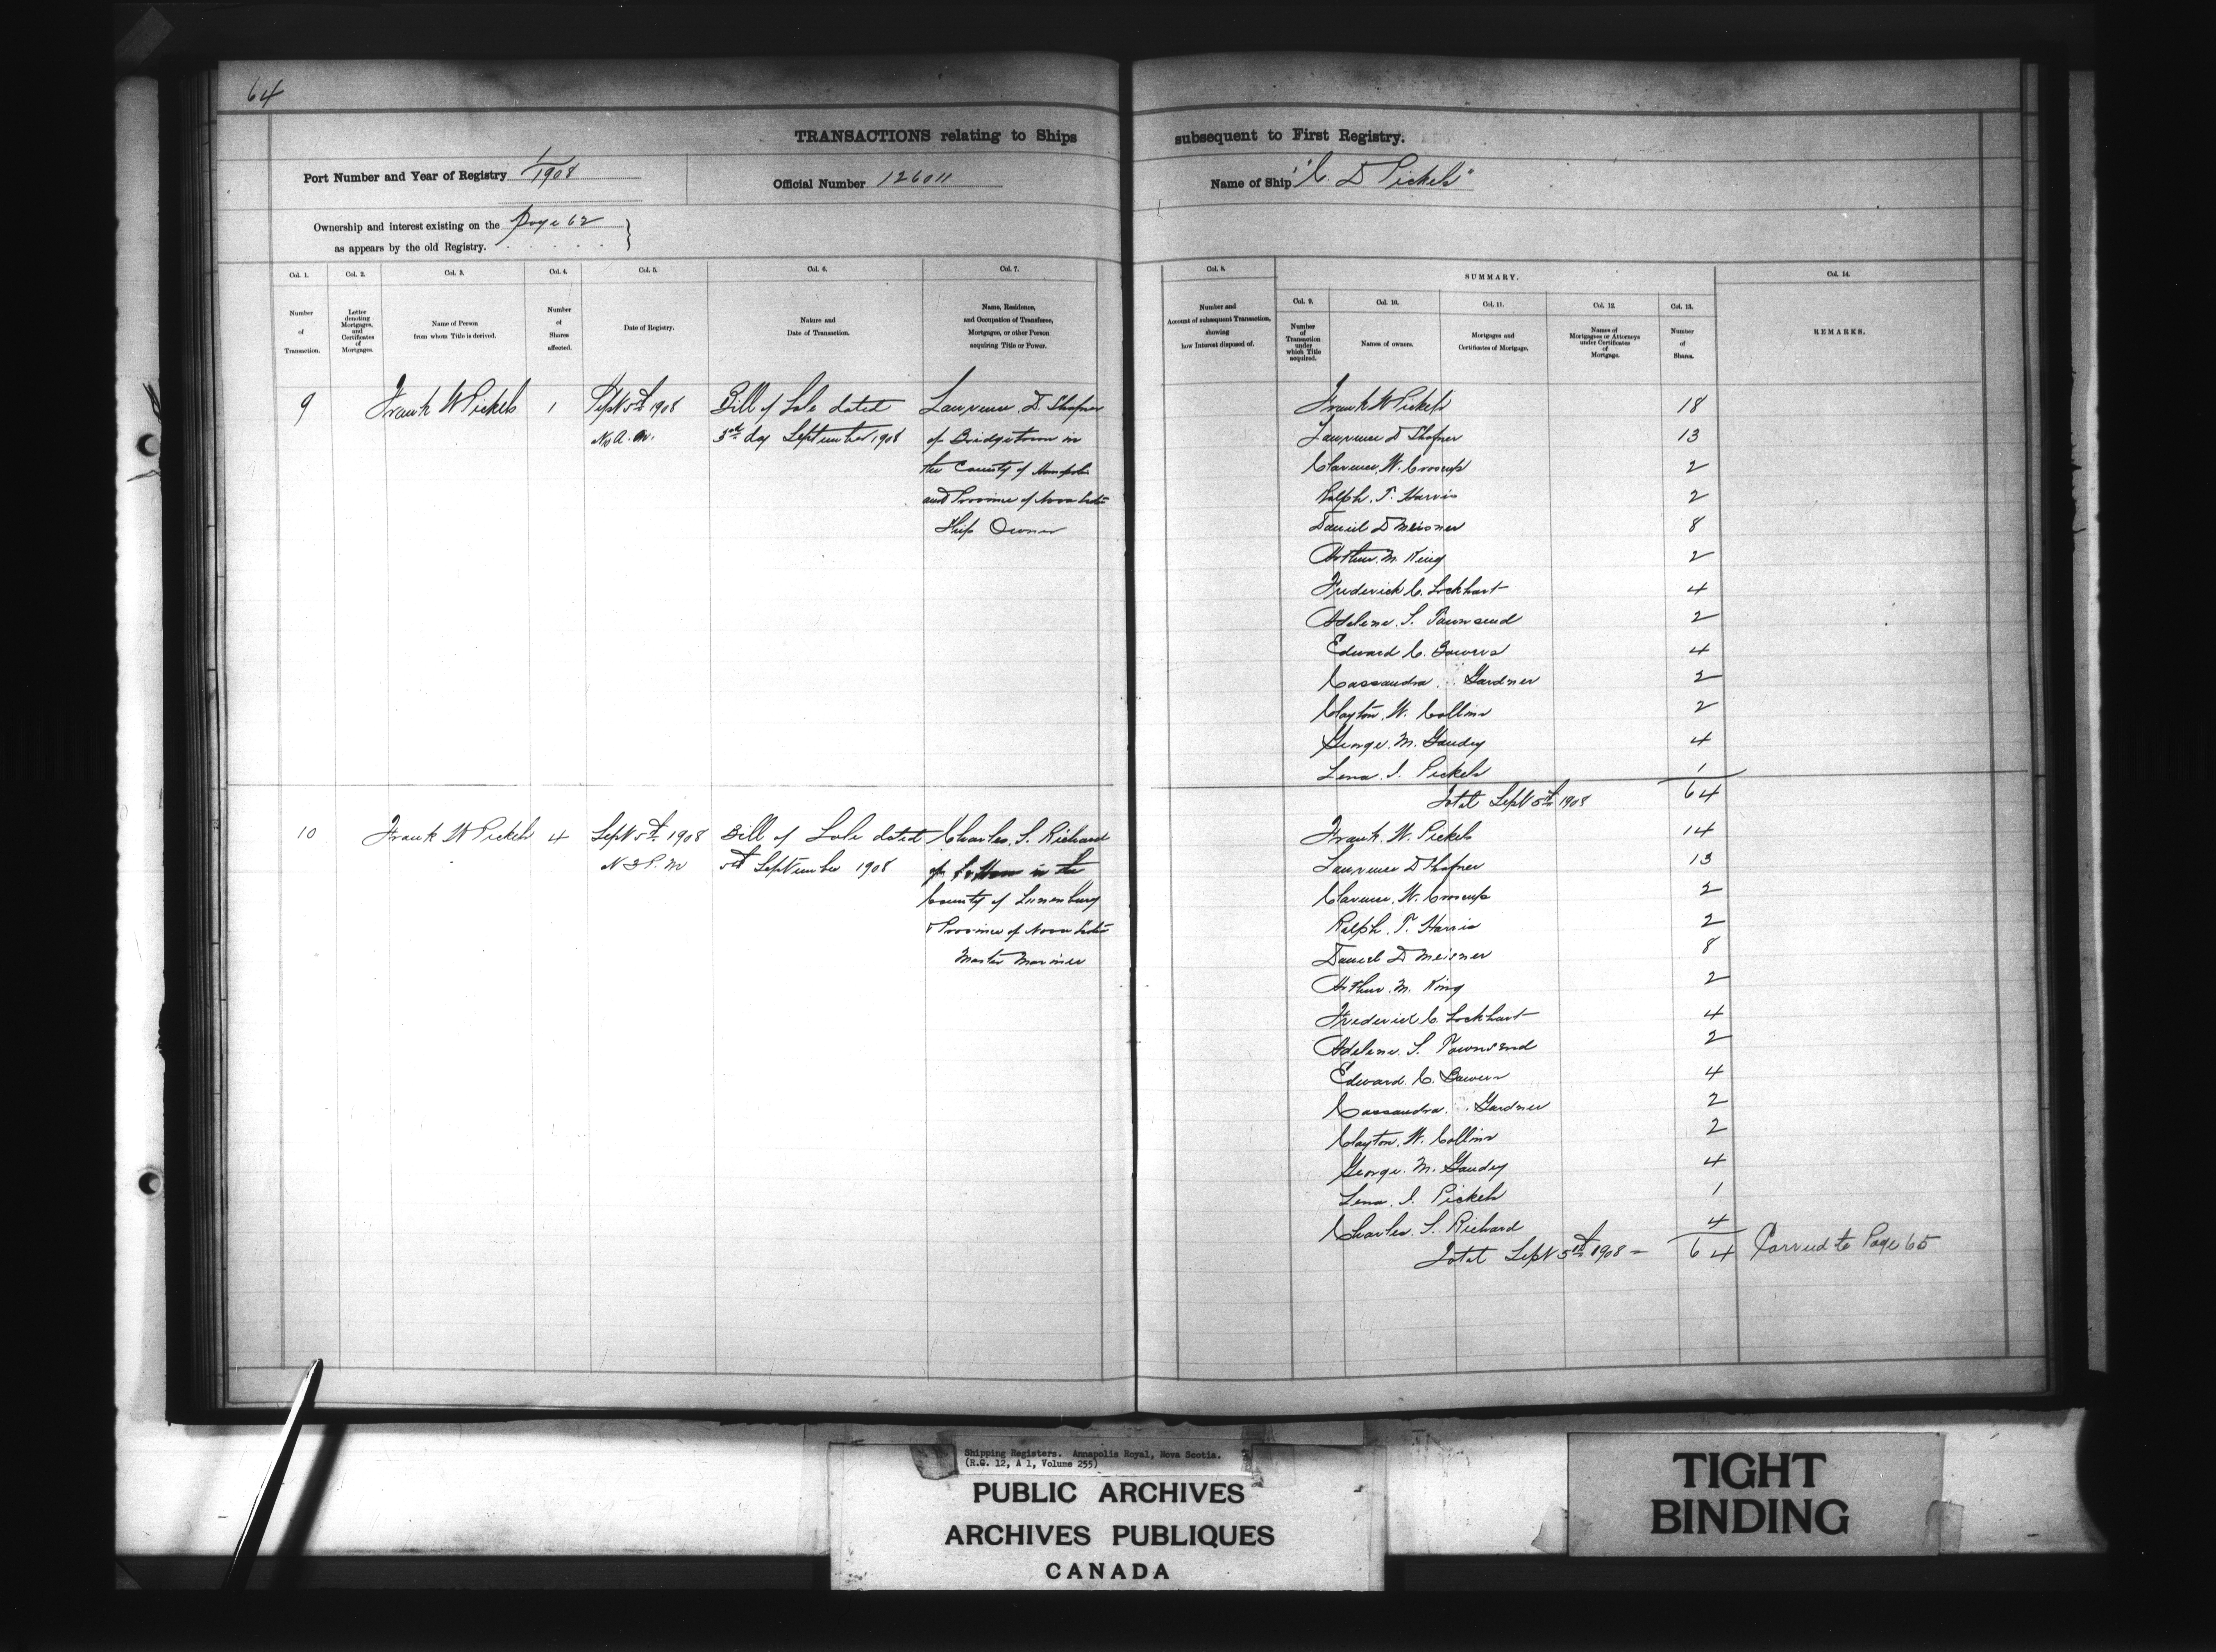 64
TRANSACTIONS relating to Ships subsequent to First Registry.
Port Number and Year of Registry 1/1908
Official Number 126011
Name of Ship "C. D Pickels"
Ownership and interest existing on the page 62
as appears by the old Registry.
Col. 1.
Number of Transaction.
Col. 2.
Letter denoting Mortgages, and Certificates of Mortgages.
Col. 3.
Name of Person from whom Title is derived.
Col. 4.
Number of Shares affected.
Col. 5.
Date of Registry.
Col. 6.
Nature and Date of Transaction.
Col. 7.
Name, Residence, and Occupation of Transferee, Mortgagee, or other Person acquiring Title or Power.
Col. 8.
Number and Account of subsequent Transaction, showing how Interest disposed of.
SUMMARY.
Col. 9.
Number of Transaction under which Title acquired.
Col. 10.
Names of owners.
Col. 11.
Mortgages and Certificates of Mortgage.
Col. 12.
Names of Mortgagees or Attorneys under Certificates of Mortgage.
Col. 13.
Number of Shares.
Col. 14.
REMARKS.
9 Frank W Pickels 1 Sept 5th 1908 Bill of Sale dated Laurence. D. Shafner
A.M. 3rd day September 1908 of Bridgetown in
the County of Annapolis
and Province of Nova Scotia
Ship Owner
Frank W Pickels 18
Laurence D Shafner 13
Clarence. W. Croscup 2
Ralph. T. Harris 2
Daniel D Meisner 8
Arthur. M. King 2
Frederick C. Lockhart 4
Adelene. S. Townsend 2
Edward C. Bowers 4
Cassandra Gardner 2
Clayton. W. Collins 2
George. M. Gaudey 4
Lena. I. Pickels 1
Total Sept 5th 1908 64
10 Frank W Pickels 4 Sept 5th 1908 Bill of Sale dated Charles. S. Richard
P.M 5th September 1908 of in the
County of Lunenburg
& Province of Nova Scotia
Master Mariner
Frank. W. Pickels 14
Laurence D Shafner 13
Clarence. W. Croscup 2
Ralph. T. Harris 2
Daniel D Meisner 8
Arthur. M. King 2
Frederick C. Lockhart 4
Adelene. S. Townsend 2
Edward. C. Bowers 4
Cassandra. Gardner 2
Clayton. W. Collins 2
George. M. Gaudey 4
Lena. I. Pickels 1
Charles. S. Richard 4
Total Sept 5th 1908 — 64 Carried to Page 65
Shipping Registers. Annapolis Royal, Nova Scotia.
(R.G. 12, A 1, Volume 255)
PUBLIC ARCHIVES
ARCHIVES PUBLIQUES
CANADA
TIGHT
BINDING